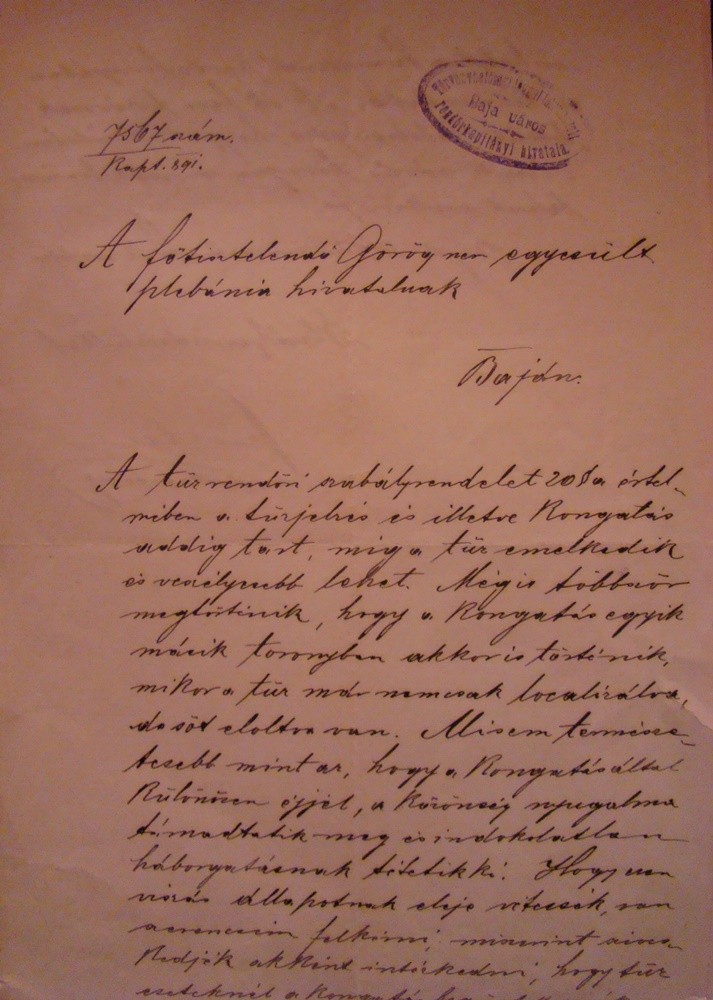 7567 szám.
Kapt. 891.
Baja város
rendőrkapitányi hivatala
A főtisztelendő Görög nem egyesült
plebánia hivatalnak
Baján.
A tűzrendőri szabályrendelet 20 § a értel-
mében a tűzjelzés és illetve kongatás
addig tart, mig a tűz emelkedik
és veszélyesebb lehet. Mégis többször
megtörténik, hogy a kongatás egyik
másik toronyban akkor is történik,
mikor a tűz már nemcsak localizálva,
de sőt eloltva van. Misem természe-
tesebb mint az, hogy a kongatás által
különösen éjjel, a közönség nyugalma
támadtatik meg és indokolatlan
háborgatásnak tétetik ki. Hogy ezen
viszás állapotnak eleje vétessék, van
szerencsém felkérni, miszerint szives-
kedjék akként intézkedni, hogy tűz
eseteknél a kongatás